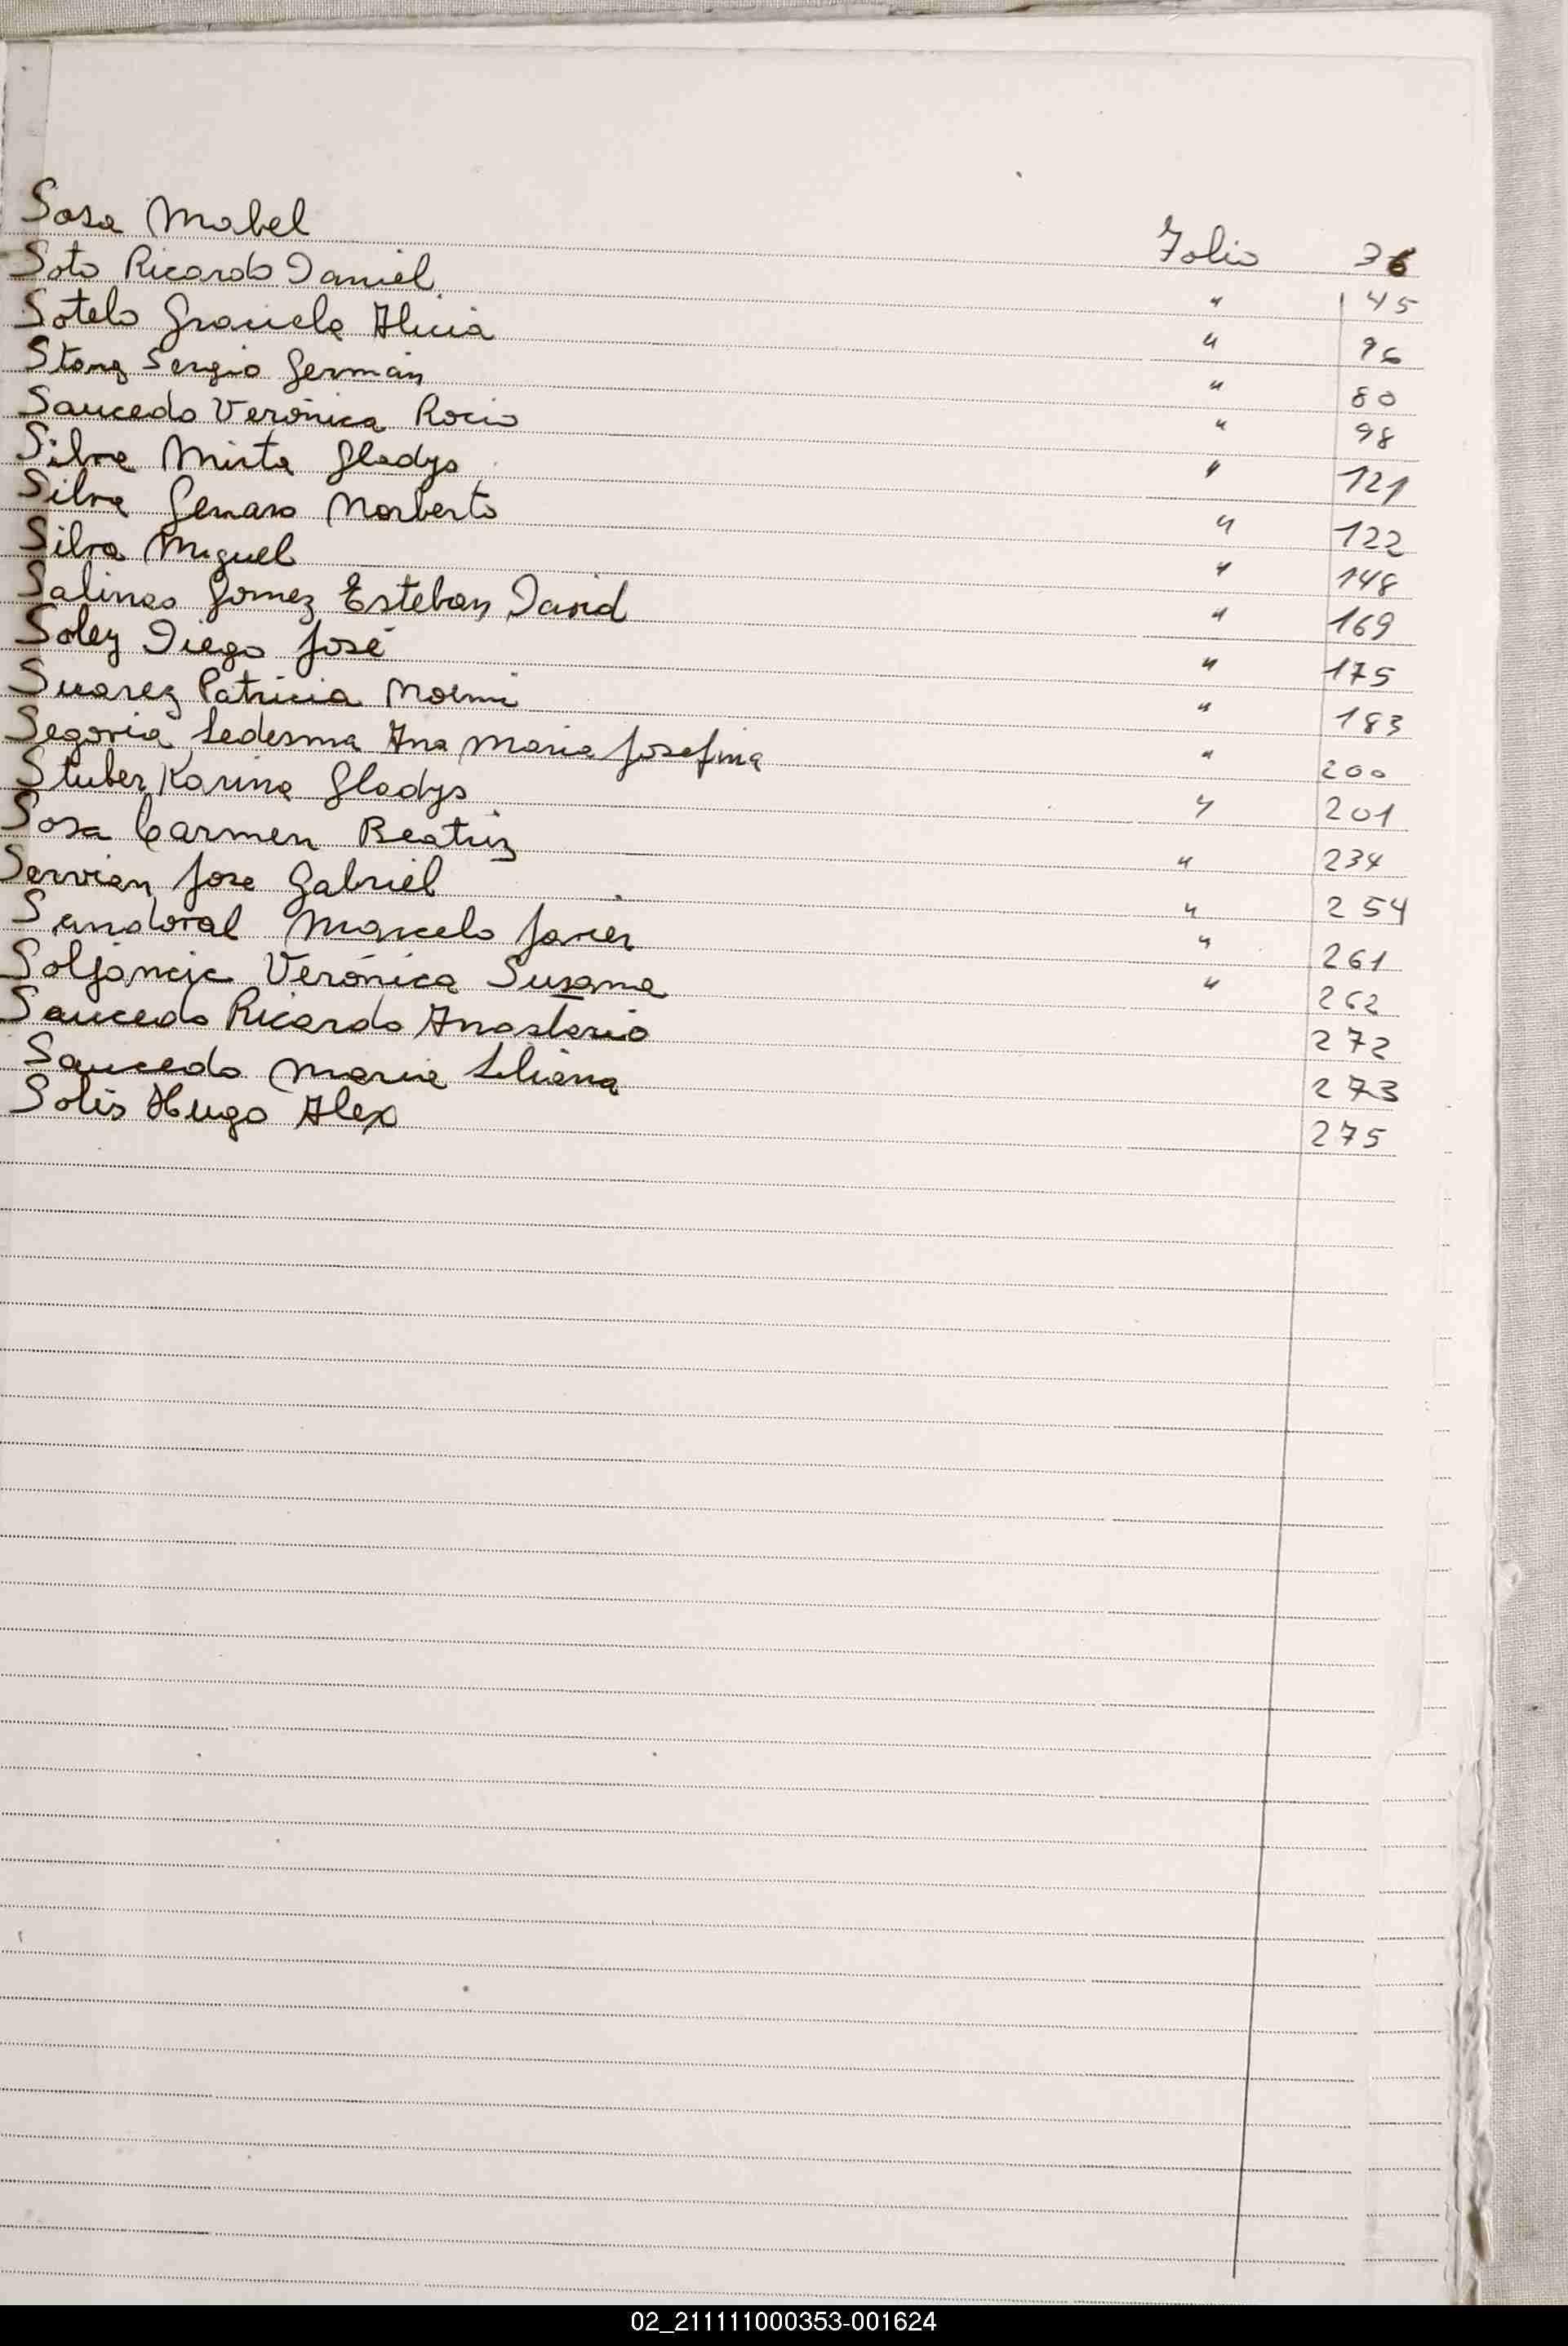 Sosa Mabel Folio 36
Soto Ricardo Daniel " 45
Sotelo Graciela Alicia " 76
Stanz Sergio Germán " 80
Saucedo Verónica Rocio " 98
Silva Mirta Gladys " 121
Silva Genaro Norberto " 122
Silva Miguel " 148
Salinas Gomez Esteban David " 169
Soley Diego José " 175
Suarez Patricia Noemi " 183
Segovia Ledesma Ana Maria Josefina " 200
Stuber Karina Gladys " 201
Sosa Carmen Beatriz " 234
Servian Jose Gabriel " 254
Sandoval Marcelo Javier " 261
Soljancic Verónica Susana " 262
Saucedo Ricardo Anastasio 272
Saucedo Maria Liliana 273
Solis Hugo Alex 275
02_211111000353-001624